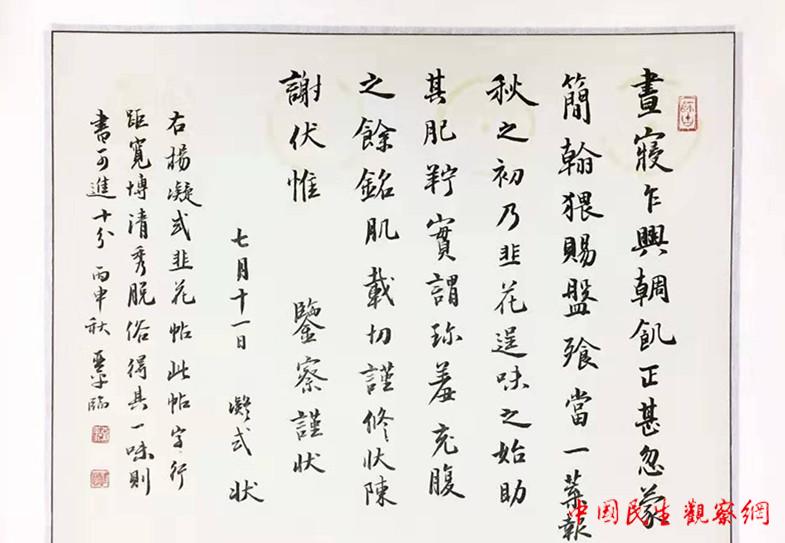 晝寢乍興輖飢正甚忽蒙
簡翰猥賜盤飱當一葉報
秋之初乃韭花逞味之始助
其肥羜實謂珍羞充腹
之餘銘肌載切謹修狀陳
謝伏惟 鑒察謹狀
七月十一日 凝式狀
右楊凝式韭花帖此帖字行
距寬博清秀脱俗得其一味則
書可進十分丙申秋 臨
中国民生觀察網